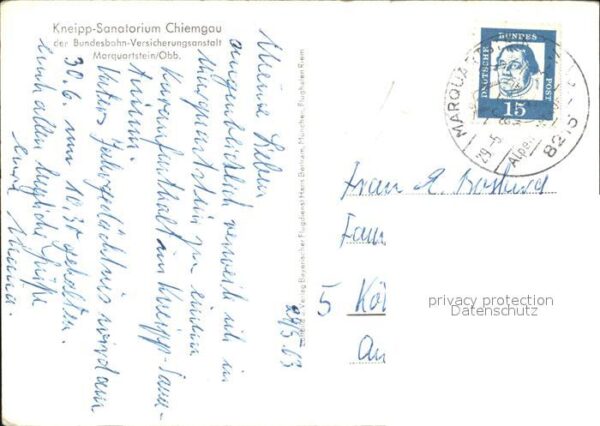 Kneipp-Sanatorium Chiemgau
der Bundesbahn-Versicherungsanstalt
Marquartstein/Obb.
Meine Lieben
augenblicklich verweile ich in
Marquartstein zu einem
Kuraufenthalt im Kneipp-Sana-
torium.
Vaters Jahrgedächtnis wird am
30.6. um 10.30 gehalten.
Euch allen herzliche Grüße
Eure
29/5.63
Verlag Bayerischer Flugdienst Hans Bertram, München, Flughafen Riem
DEUTSCHE BUNDES POST
15
MARQUA
8215
29.-5.
Alpe
Frau E.
Fam
5 Köl
An
privacy protection
Datenschutz